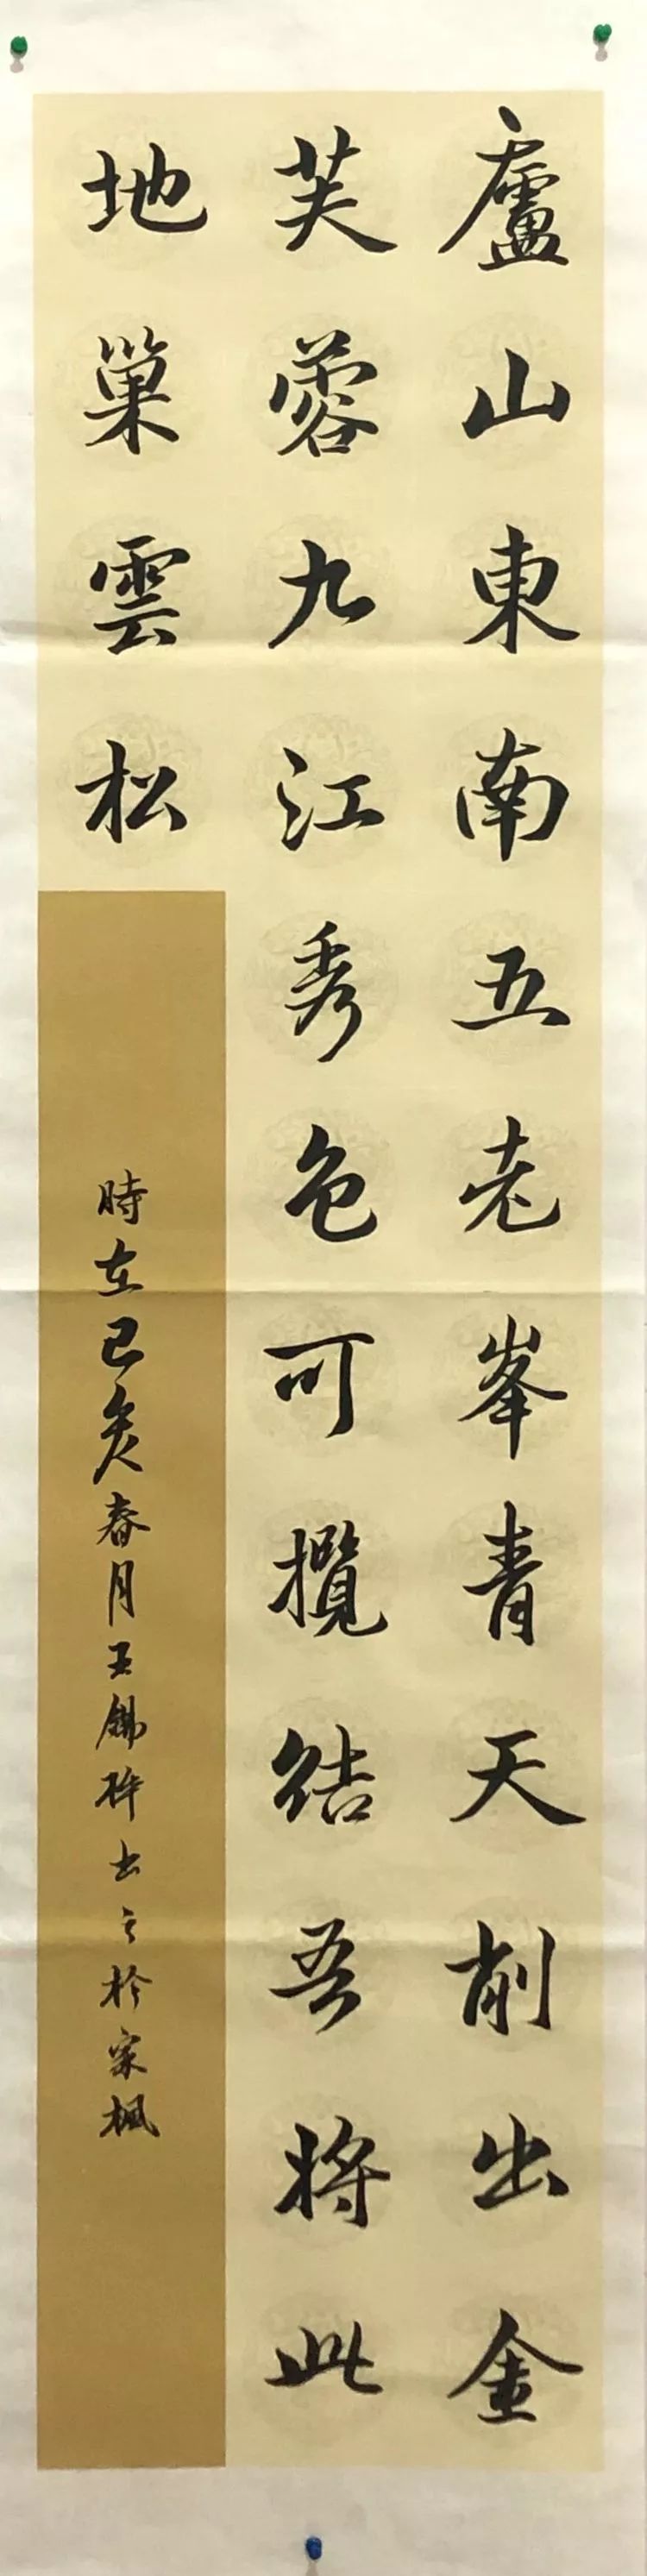 廬山東南五老峯青天削出金
芙蓉九江秀色可攬結吾將此
地巢雲松
時在己亥春月王錫